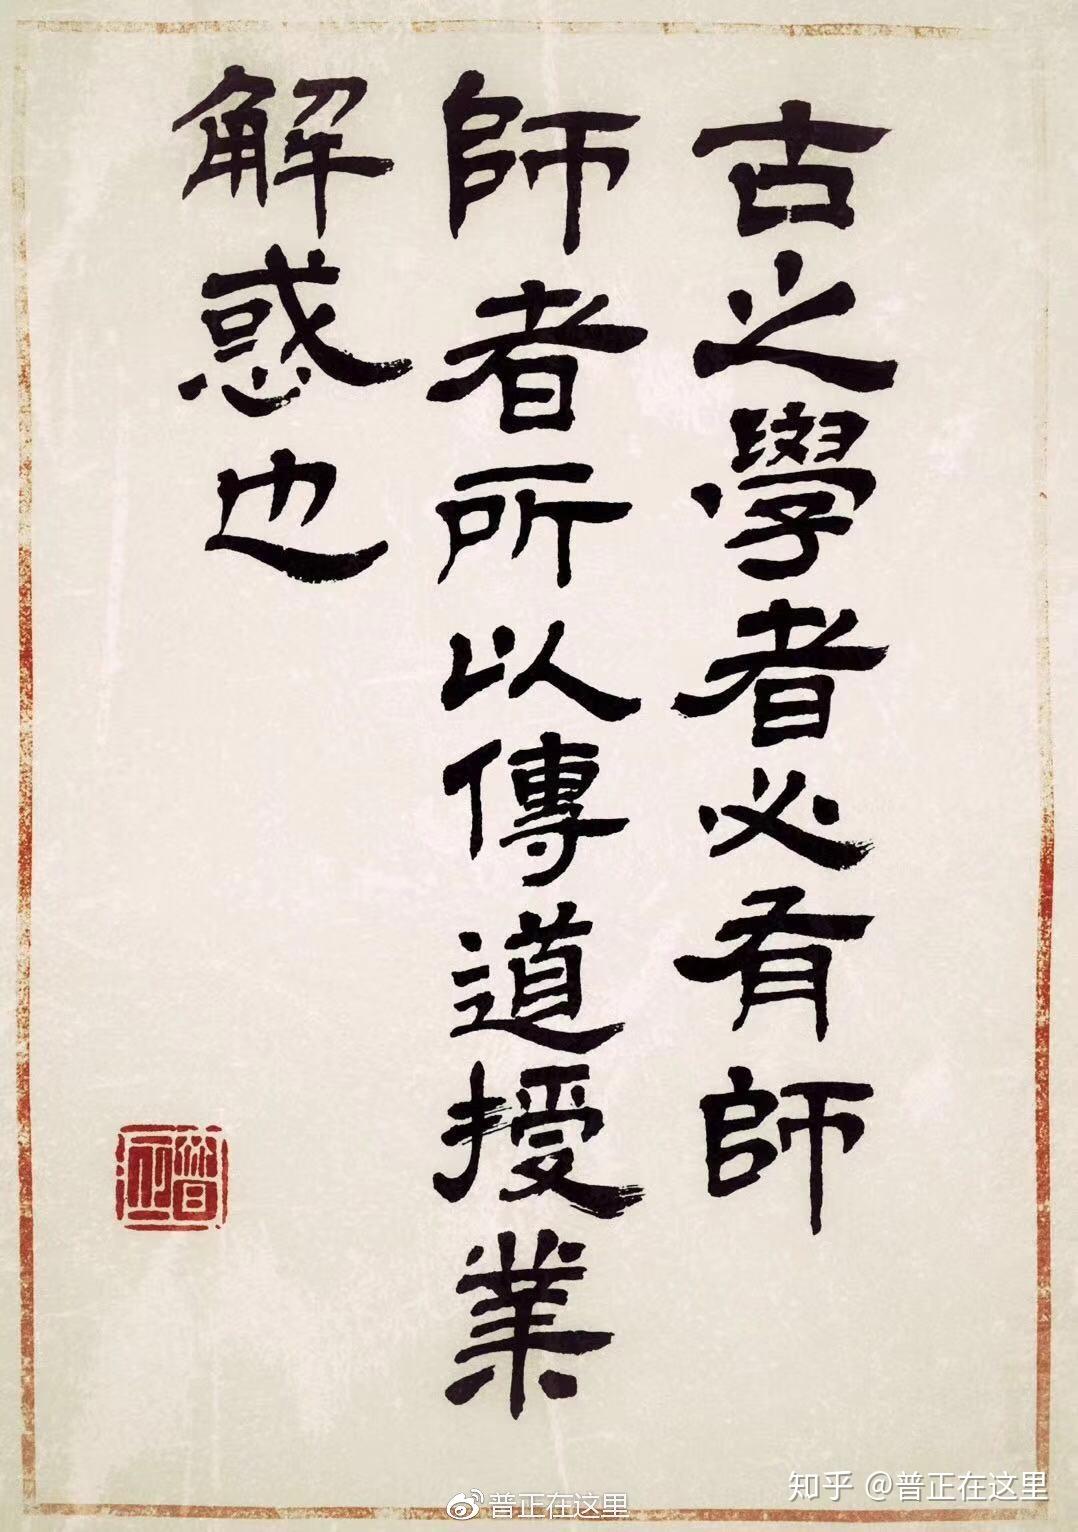 古之學者必有師
師者所以傳道授業
解惑也
普正在这里
知乎 @普正在这里